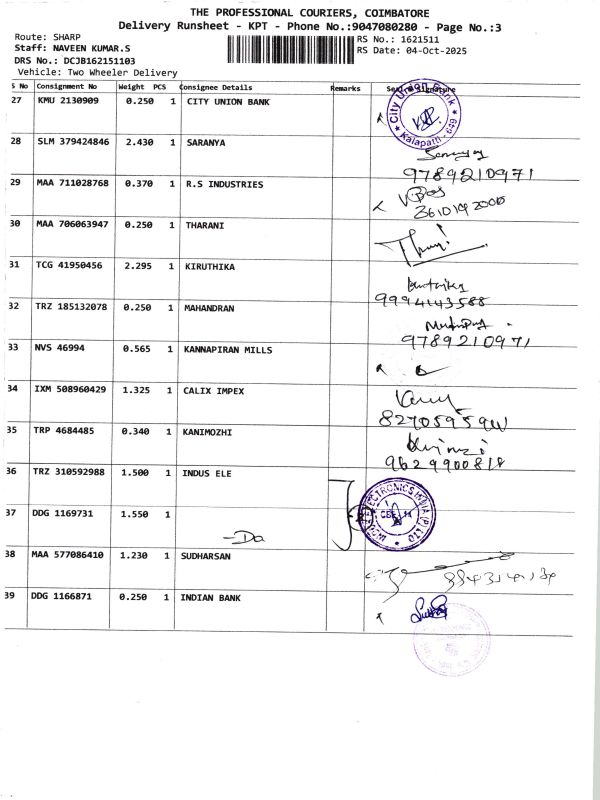 THE PROFESSIONAL COURIERS, COIMBATORE
Delivery Runsheet - KPT - Phone No.:9047080280 - Page No.:3
Route: SHARP
RS No.: 1621511
Staff: NAVEEN KUMAR.S
RS Date: 04-Oct-2025
DRS No.: DCJB162151103
Vehicle: Two Wheeler Delivery
S No Consignment No Weight PCS Consignee Details Remarks Seal & Signature
27 KMU 2130909 0.250 1 CITY UNION BANK
City Union Bank
Kalapatti - 649
28 SLM 379424846 2.430 1 SARANYA
Saranya
9789210971
29 MAA 711028768 0.370 1 R.S INDUSTRIES
30 MAA 706063947 0.250 1 THARANI
31 TCG 41950456 2.295 1 KIRUTHIKA
9994143588
32 TRZ 185132078 0.250 1 MAHANDRAN
9789210971
33 NVS 46994 0.565 1 KANNAPIRAN MILLS
34 IXM 508960429 1.325 1 CALIX IMPEX
35 TRP 4684485 0.340 1 KANIMOZHI
9629900818
36 TRZ 310592988 1.500 1 INDUS ELE
ELECTRONICS INDIA (P) LTD
37 DDG 1169731 1.550 1
-Do
38 MAA 577086410 1.230 1 SUDHARSAN
39 DDG 1166871 0.250 1 INDIAN BANK